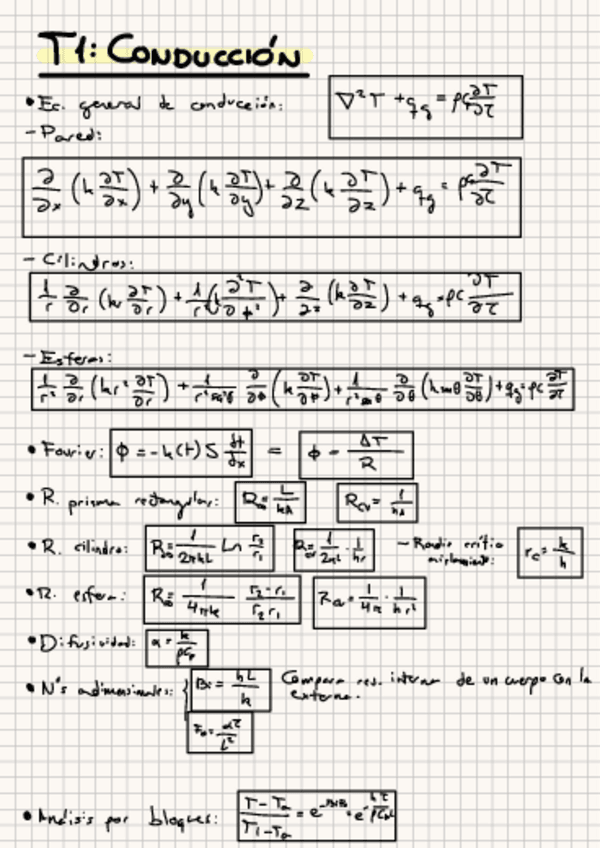 T1: CONDUCCIÓN
• Ec. general de conducción: ∇²T + q_g = ρc ∂T/∂τ
- Pared:
∂/∂x (k ∂T/∂x) + ∂/∂y (k ∂T/∂y) + ∂/∂z (k ∂T/∂z) + q_g = ρc ∂T/∂τ
- Cilindros:
1/r ∂/∂r (kr ∂T/∂r) + 1/r² (∂²T/∂φ²) + ∂/∂z (k ∂T/∂z) + q_g = ρc ∂T/∂τ
- Esferas:
1/r² ∂/∂r (kr² ∂T/∂r) + 1/r² sen²θ ∂/∂φ (k ∂T/∂φ) + 1/r² senθ ∂/∂θ (k senθ ∂T/∂θ) + q_g = ρc ∂T/∂τ
• Fourier: φ = -k(t) S dt/dx = φ = ΔT/R
• R. prisma rectangular: R = L/kA R_cv = 1/hA
• R. cilindro: R = 1/2πkL Ln r₂/r₁ 1/2πL · 1/hr - Radio crítico aislamiento: r_c = k/h
• R. esfera: R = 1/4πk r₂-r₁/r₂r₁ R = 1/4π · 1/hr²
• Difusividad: α = k/ρc_p
• N°s adimensionales: Bi = hL/k Compara res. interna de un cuerpo con la
externa.
Fo = ατ/L²
• Análisis por bloques: T-T∞/T₁-T∞ = e